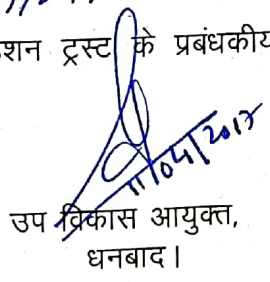 शन ट्रस्ट के प्रबंधकीय
11/04/2017
उप विकास आयुक्त,
धनबाद।